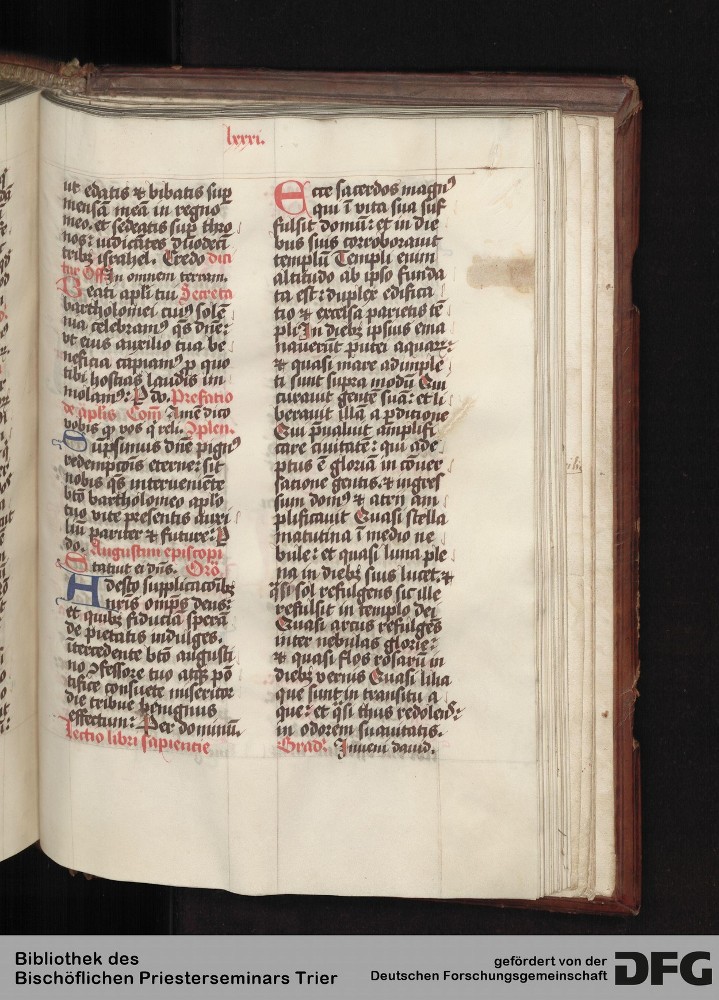 lxxxi.
ut edatis et bibatis sup
mensā meā in regno
meo. et sedeatis sup thro
nos: iudicātes duodecī
tribꝫ israhel. Credo dici
tur Off. In omnem terram.
Beati apli tui Secreta
bartholomei cuiꝰ solē
nia celebramꝰ qs dne:
ut eius auxilio tua be
neficia capiamꝰ p quo
tibi hostias laudis im
molamꝰ: P dn. Prefatio
de aplis Com Amē dico
vobis qꝫ vos q reli. Cplen.
Sūpsimus dne pignꝰ
redemptōis eterne: sit
nobis qs interueniēte
bto bartholomeo aplo
tuo vite presentis auxi
liū pariter et future: P
do. Augustini episcopi
Statuit ei dns. Oro
Adesto supplicacōibꝫ
nris omps deus:
et quibꝫ fiducia sperā
de pietatis indulges.
ītercedente bto augusti
no ꝯfessore tuo atqꝫ pō
tifice consuete misericor
die tribue benignus
effectum: Per dominum.
Lectio libri sapientie
Ecce sacerdos magnꝰ
qui ī vita sua suf
fulsit domū: et in die
bus suis corroborauit
templū Templi eium
altitudo ab ipso funda
ta est: duplex edifica
tio et excelsa parietis tē
pli In diebꝫ ipsius ema
nauerūt putei aquaꝝ:
et quasi mare adimple
ti sunt supra modū Qui
curauit gentē suā: et li
berauit illā a pditione
Qui pualuit amplifi
care ciuitatē: qui ade
ptus ē gloriā in cōuer
satione gentis. et ingres
sum domꝰ et atrii am
plificauit Quasi stella
matutina ī medio ne
bule: et quasi luna ple
na in diebꝫ suis lucet. et
qsi sol refulgens sic ille
refulsit in templo dei
Quasi arcus refulgēs
inter nebulas glorie:
et quasi flos rosarū in
diebꝫ vernis Quasi lilia
que sunt in transitu a
que: et qsi thus redolens:
in odorem suauitatis.
Grad. Inueni dauid.
Bibliothek des
Bischöflichen Priesterseminars Trier
gefördert von der
Deutschen Forschungsgemeinschaft
DFG